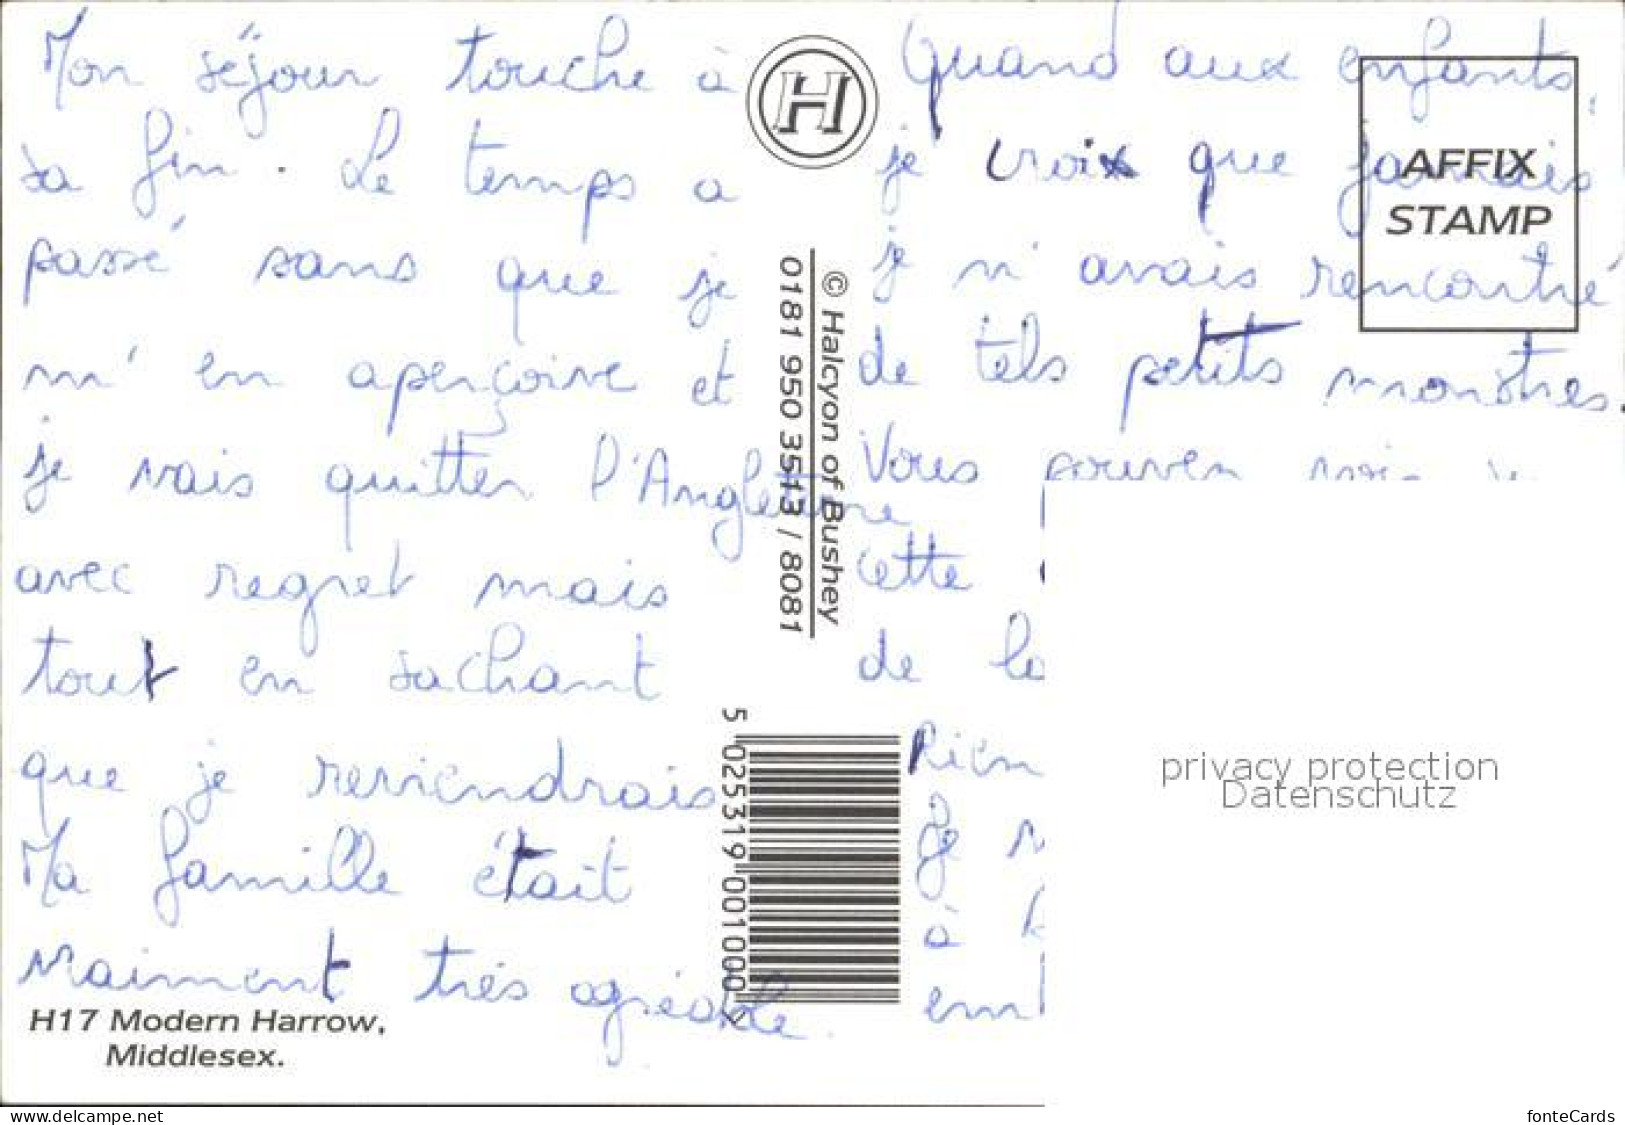 Mon séjour touche à
sa fin. Le temps a
passé sans que je
m'en aperçoive et
je vais quitter l'Angleterre
avec regret mais
tout en sachant
que je reviendrais
Ma famille était
vraiment très agréable.
H17 Modern Harrow,
Middlesex.
H
© Halcyon of Bushey
0181 950 3513 / 8081
5 025319 001000
Quand aux enfants,
je croix que jamais
je n'avais rencontré
de tels petits monstres.
Vous pouvez
cette
de
Rien
Je
à
AFFIX
STAMP
privacy protection
Datenschutz
www.delcampe.net
fonteCards